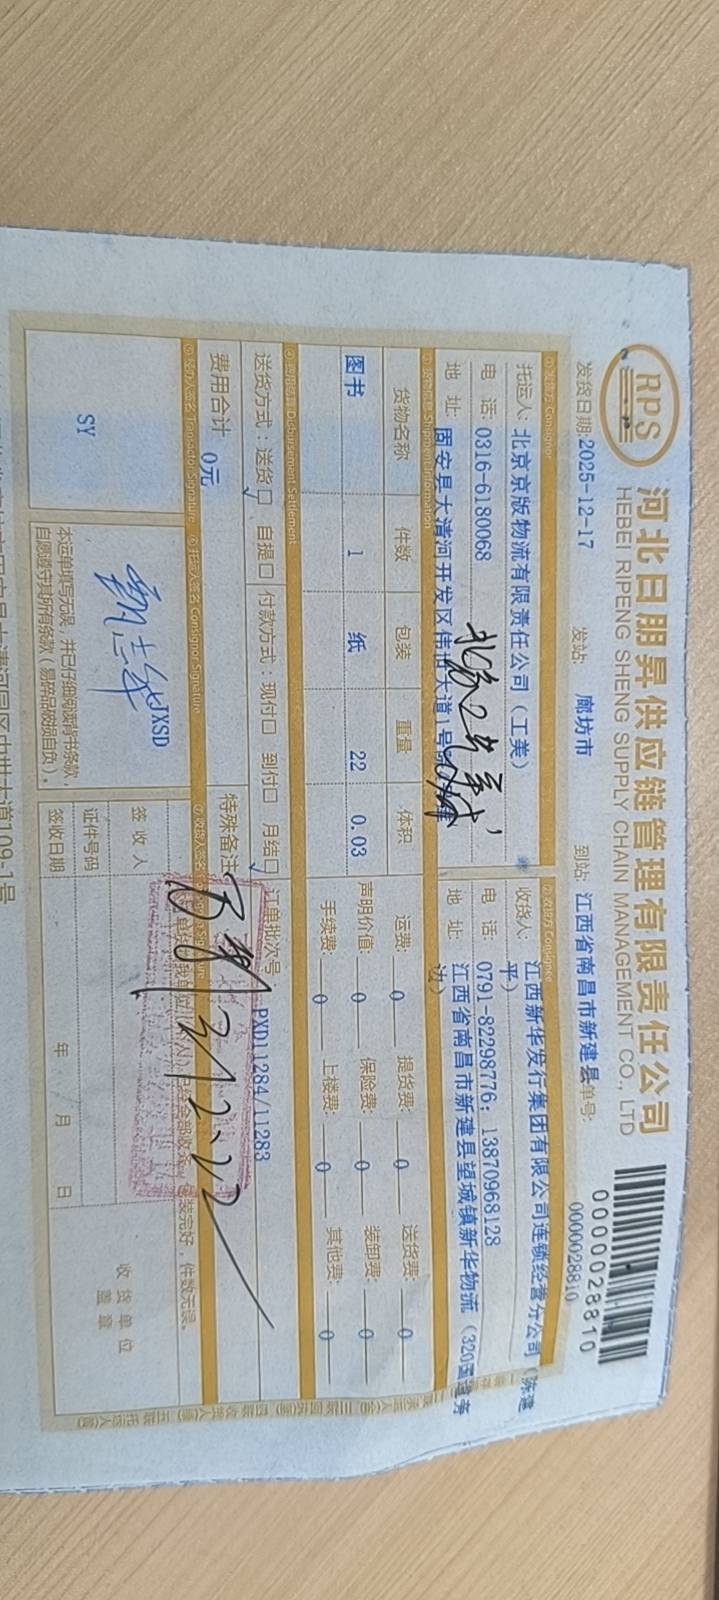 RPS
河北日朋昇供应链管理有限责任公司
HEBEI RIPENG SHENG SUPPLY CHAIN MANAGEMENT CO., LTD
0000028810
发货日期:2025-12-17 发站: 廊坊市 到站: 江西省南昌市新建县 单号: 0000028810
①发货方 Consignor ②收货方 Consignee
托运人: 北京京版物流有限责任公司（工美） 收货人: 江西新华发行集团有限公司连锁经营分公司（陈建平）
电 话: 0316-6180068 电 话: 0791-82298776; 13870968128
地 址: 固安县大清河开发区伟世大道1号 地 址: 江西省南昌市新建县望城镇新华物流（320国道旁边）
③货物信息 Shipment Information
货物名称 件数 包装 重量 体积 运费: 0 提货费: 0 送货费: 0
图书 1 纸 22 0.03 声明价值: 0 保险费: 0 装卸费: 0
手续费: 0 上楼费: 0 其他费: 0
④费用结算 Disbursement Settlement
送货方式: 送货☐ ✓ 自提☐ 付款方式: 现付☐ 到付☐ 月结☐ ✓ 订单批次号 PXD11284/11283
费用合计 0元 特殊备注
⑤经办人签名 Transactor Signature ⑥托运人签名 Consignor Signature ⑦收货人签名
SY
JXSD
本运单填写无误，并已仔细阅读背书条款，
自愿遵守其所有条款（易碎品破损自负）。
包装完好，件数无误。
签 收 人
证件号码
签收日期 年 月 日
收货单位
盖 章